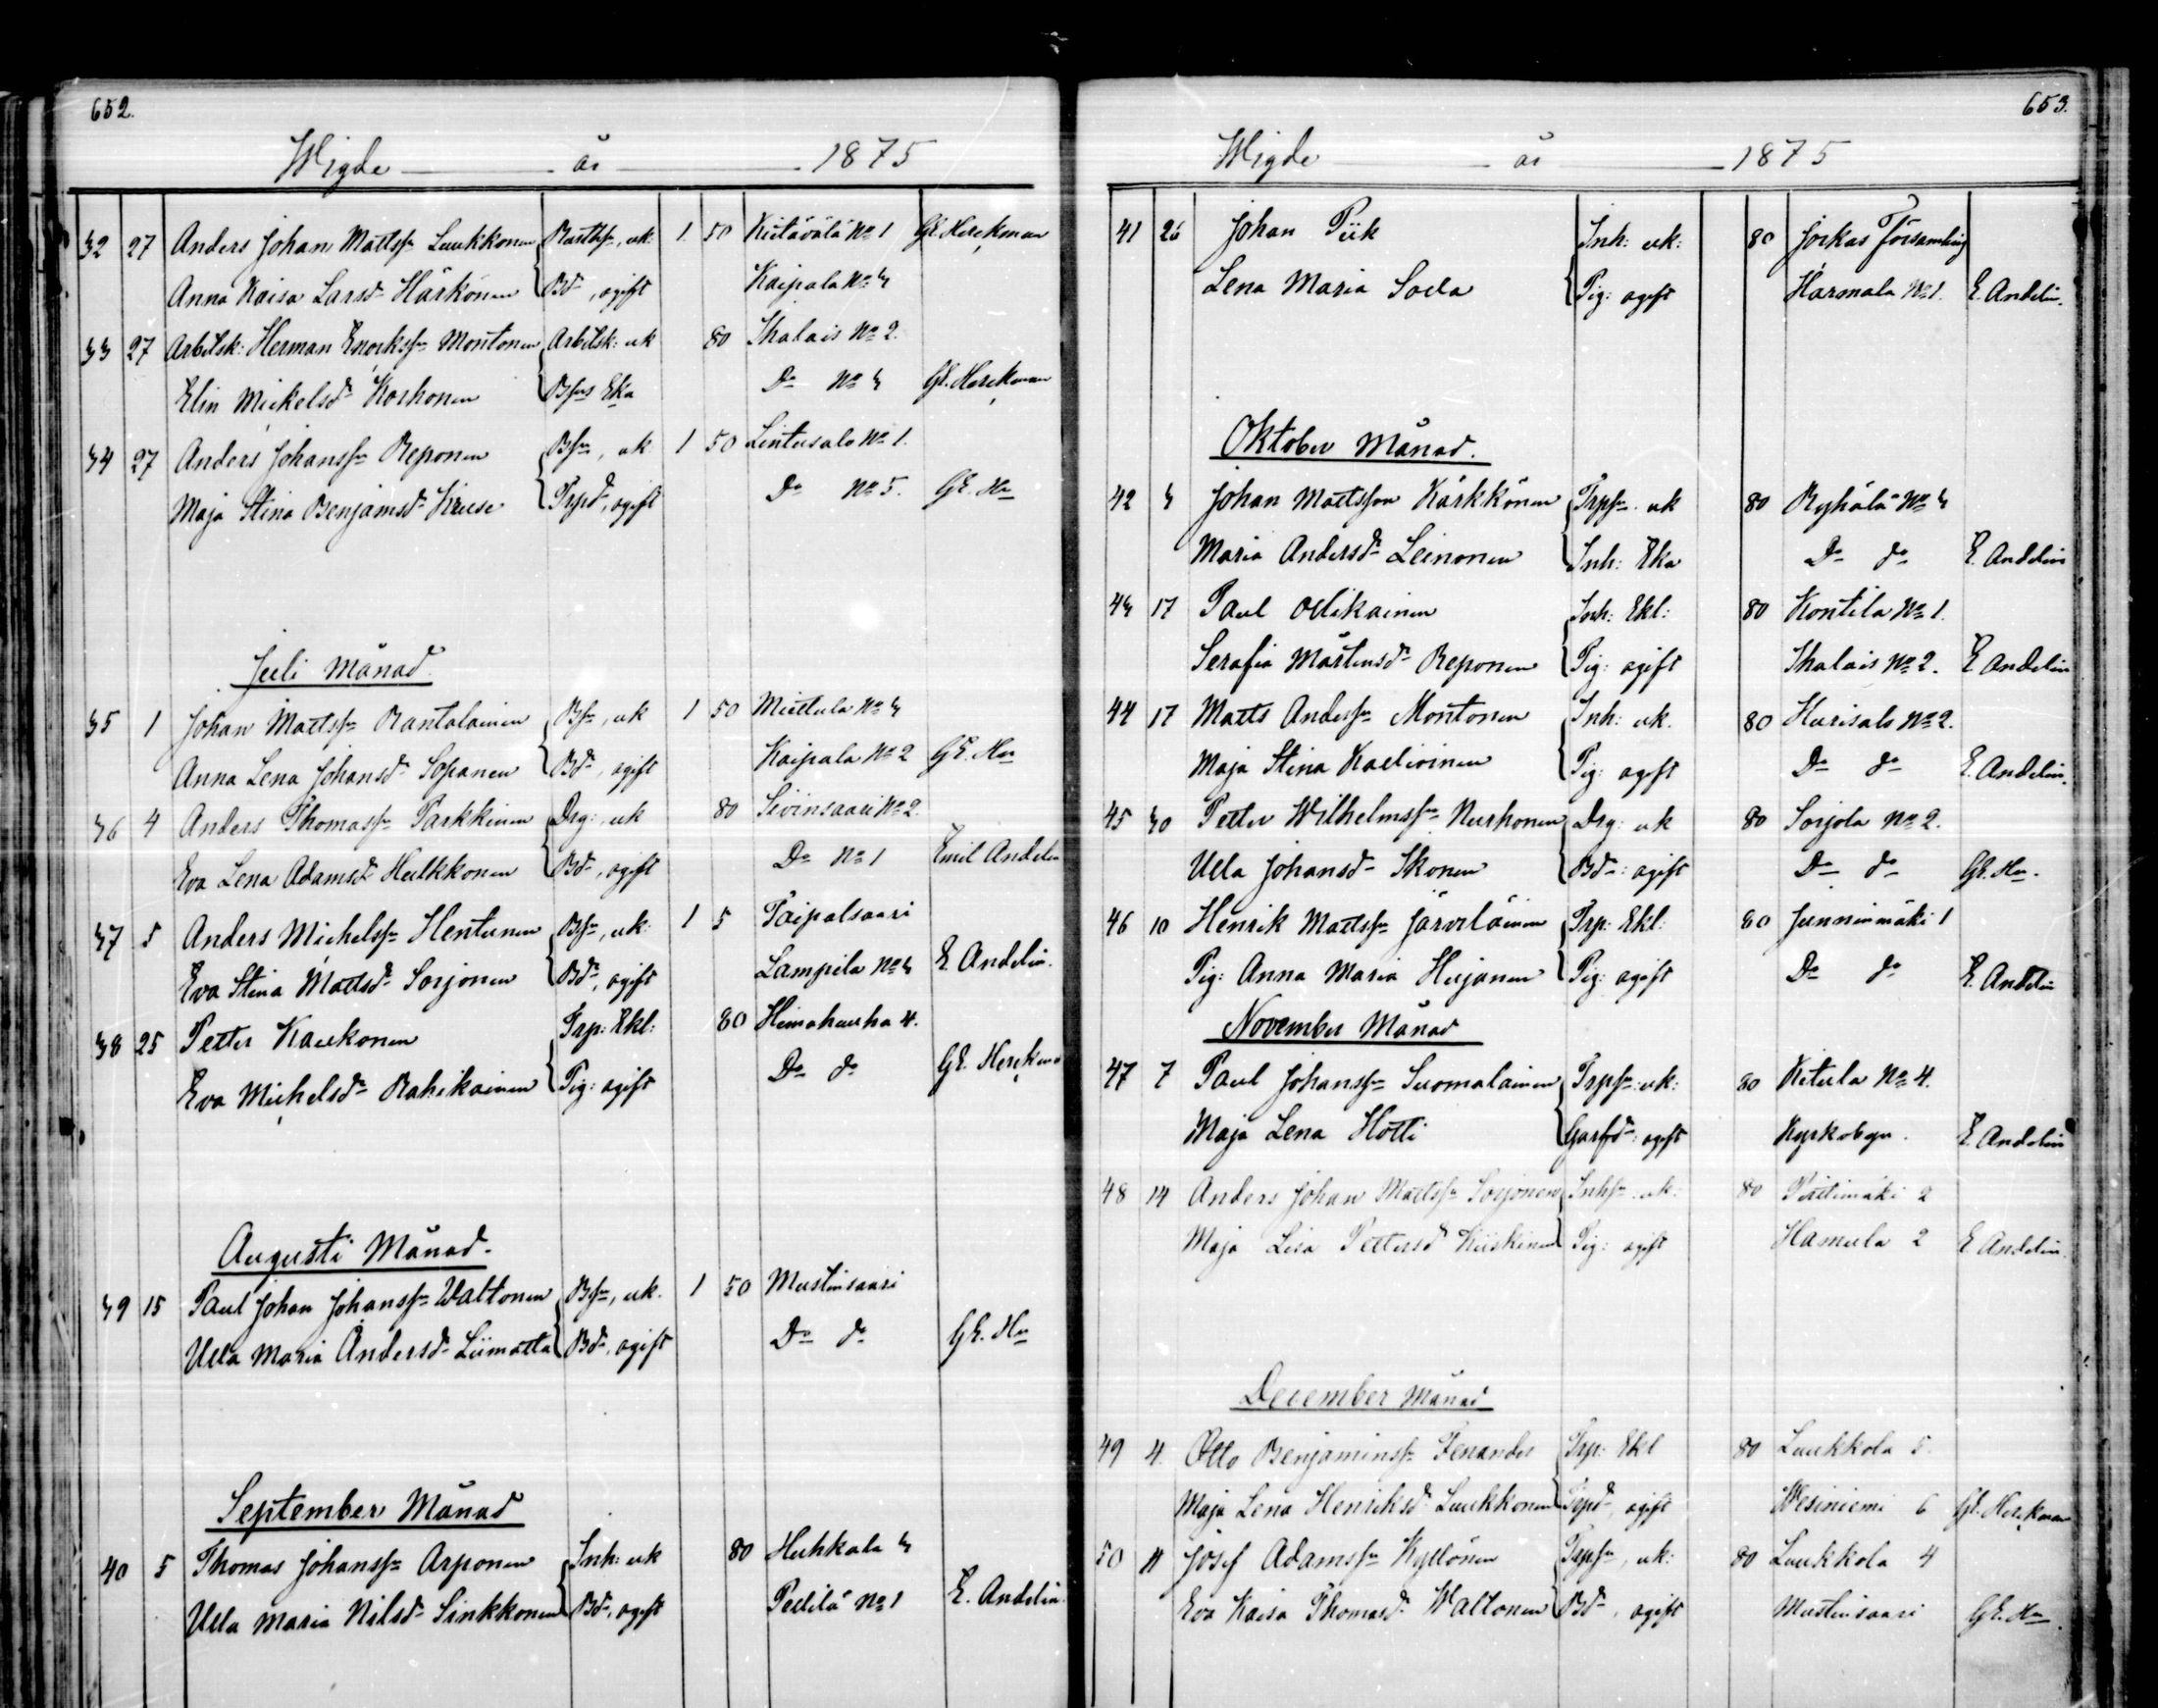 652.
Wigde år 1875
32 27 Anders Johan Mattss:n Luukkonen Bonths:, uk: 1. 50 Kiitävälä No 1 GE. Herckman
Anna Kaisa Larsd:r Härkönen Bd:r, ogift Kaipala No 3
33 27 Arbetsk: Herman Enocks:n Montonen Arbetsk: uk 80 Ihalais No 2.
Elin Mickelsd:r Korhonen Bsns Eka Do No 3 GE. Herckman
34 27 Anders Johanss:n Reponen Bsn, uk. 1 50 Lintusalo No 1.
Maja Stina Benjamsd:r Kruse Trpd:r, ogift Do No 5. GE. Hn
Juli Månad
35 1 Johan Mattss:n Rantalainen Bsn, uk 1 50 Miettula No 3
Anna Lena Johansd:r Sopanen Bd:r, ogift Kaipala No 2 GE. Hn
36 4 Anders Thomass:n Parkkinen Drg:, uk 80 Sivinsaari No 2.
Eva Lena Adamsd:r Hulkkonen Bd:r, ogift Do No 1 Emil Andelin
37 5 Anders Michelss:n Hentunen Bsn, uk: 1 5 Taipalsaari
Eva Stina Mattsd:r Sorjonen Bd:r, ogift Lampila No 3 E. Andelin.
38 25 Petter Kaukonen Trp: Ekl: 80 Himahauha 4.
Eva Michelsd:r Rahikainen Pig: ogift Do do GE. Herckman
Augusti Månad.
39 15 Paul Johan Johanss:n Waltonen Bsn, uk. 1 50 Mustinsaari
Ulla Maria Andersd:r Liimatta Bd:r, ogift Do do GE. Hn
September Månad
40 5 Thomas Johanss:n Arponen Inh: uk 80 Huhkala 3
Ulla Maria Nilsd:r Sinkkonen Bd:r, ogift Peltilä No 1 E. Andelin.
653.
Wigde år 1875
41 26 Johan Piik Inh: uk: 80 Jorkas Församling
Lena Maria Soela Pig: ogift Harmala No 1. E. Andelin.
Oktober Månad.
42 3 Johan Mattsson Kärkkönen Trps:n uk 80 Ryhälä No 3
Maria Andersd:r Leinonen Inh: Eka Do do E. Andelin
43 17 Paul Ollikainen Inh: Ekl: 80 Kontila No 1.
Serafia Mårtensd:r Reponen Pig: ogift Ihalais No 2. E Andelin
44 17 Matts Anderss:n Montonen Inh: uk. 80 Hurisalo No 2.
Maja Stina Kaelivinen Pig: ogift Do do E. Andelin.
45 30 Petter Wilhelmss:n Nurhonen Drg: uk 80 Sorjola No 2.
Ulla Johansd:r Ikonen Bd:r: ogift Do do GE. Hn.
46 10 Henrik Mattss:n Järveläinen Trp: Ekl: 80 Junninmäki 1
Pig: Anna Maria Hujanen Pig: ogift Do do E. Andelin
November Månad
47 7 Paul Johanss:n Suomalainen Trps:n uk: 80 Kitula No 4.
Maja Lena Hotti Garfd:r: ogift Kyrkobyn. E. Andelin
48 14 Anders Johan Mattss:n Sorjonen Inhs:n uk: 80 2
Maja Lisa Pettersd Kiiskinen Pig: ogift Hamula 2 E Andelin
December Månad
49 4. Otto Benjaminss:n Fenander Trp: Ekl 80 Luukkola 5.
Maja Lena Henriksd:r Luukkonen Trpd:r, ogift Wesiniemi 6 GE. Herckman
50 11 Josef Adamss:n Kyllönen Trps:n, uk: 80 Luukkola 4
Eva Kaisa Thomasd:r Waltonen Bd:r, ogift Mustinsaari GE. Hn.